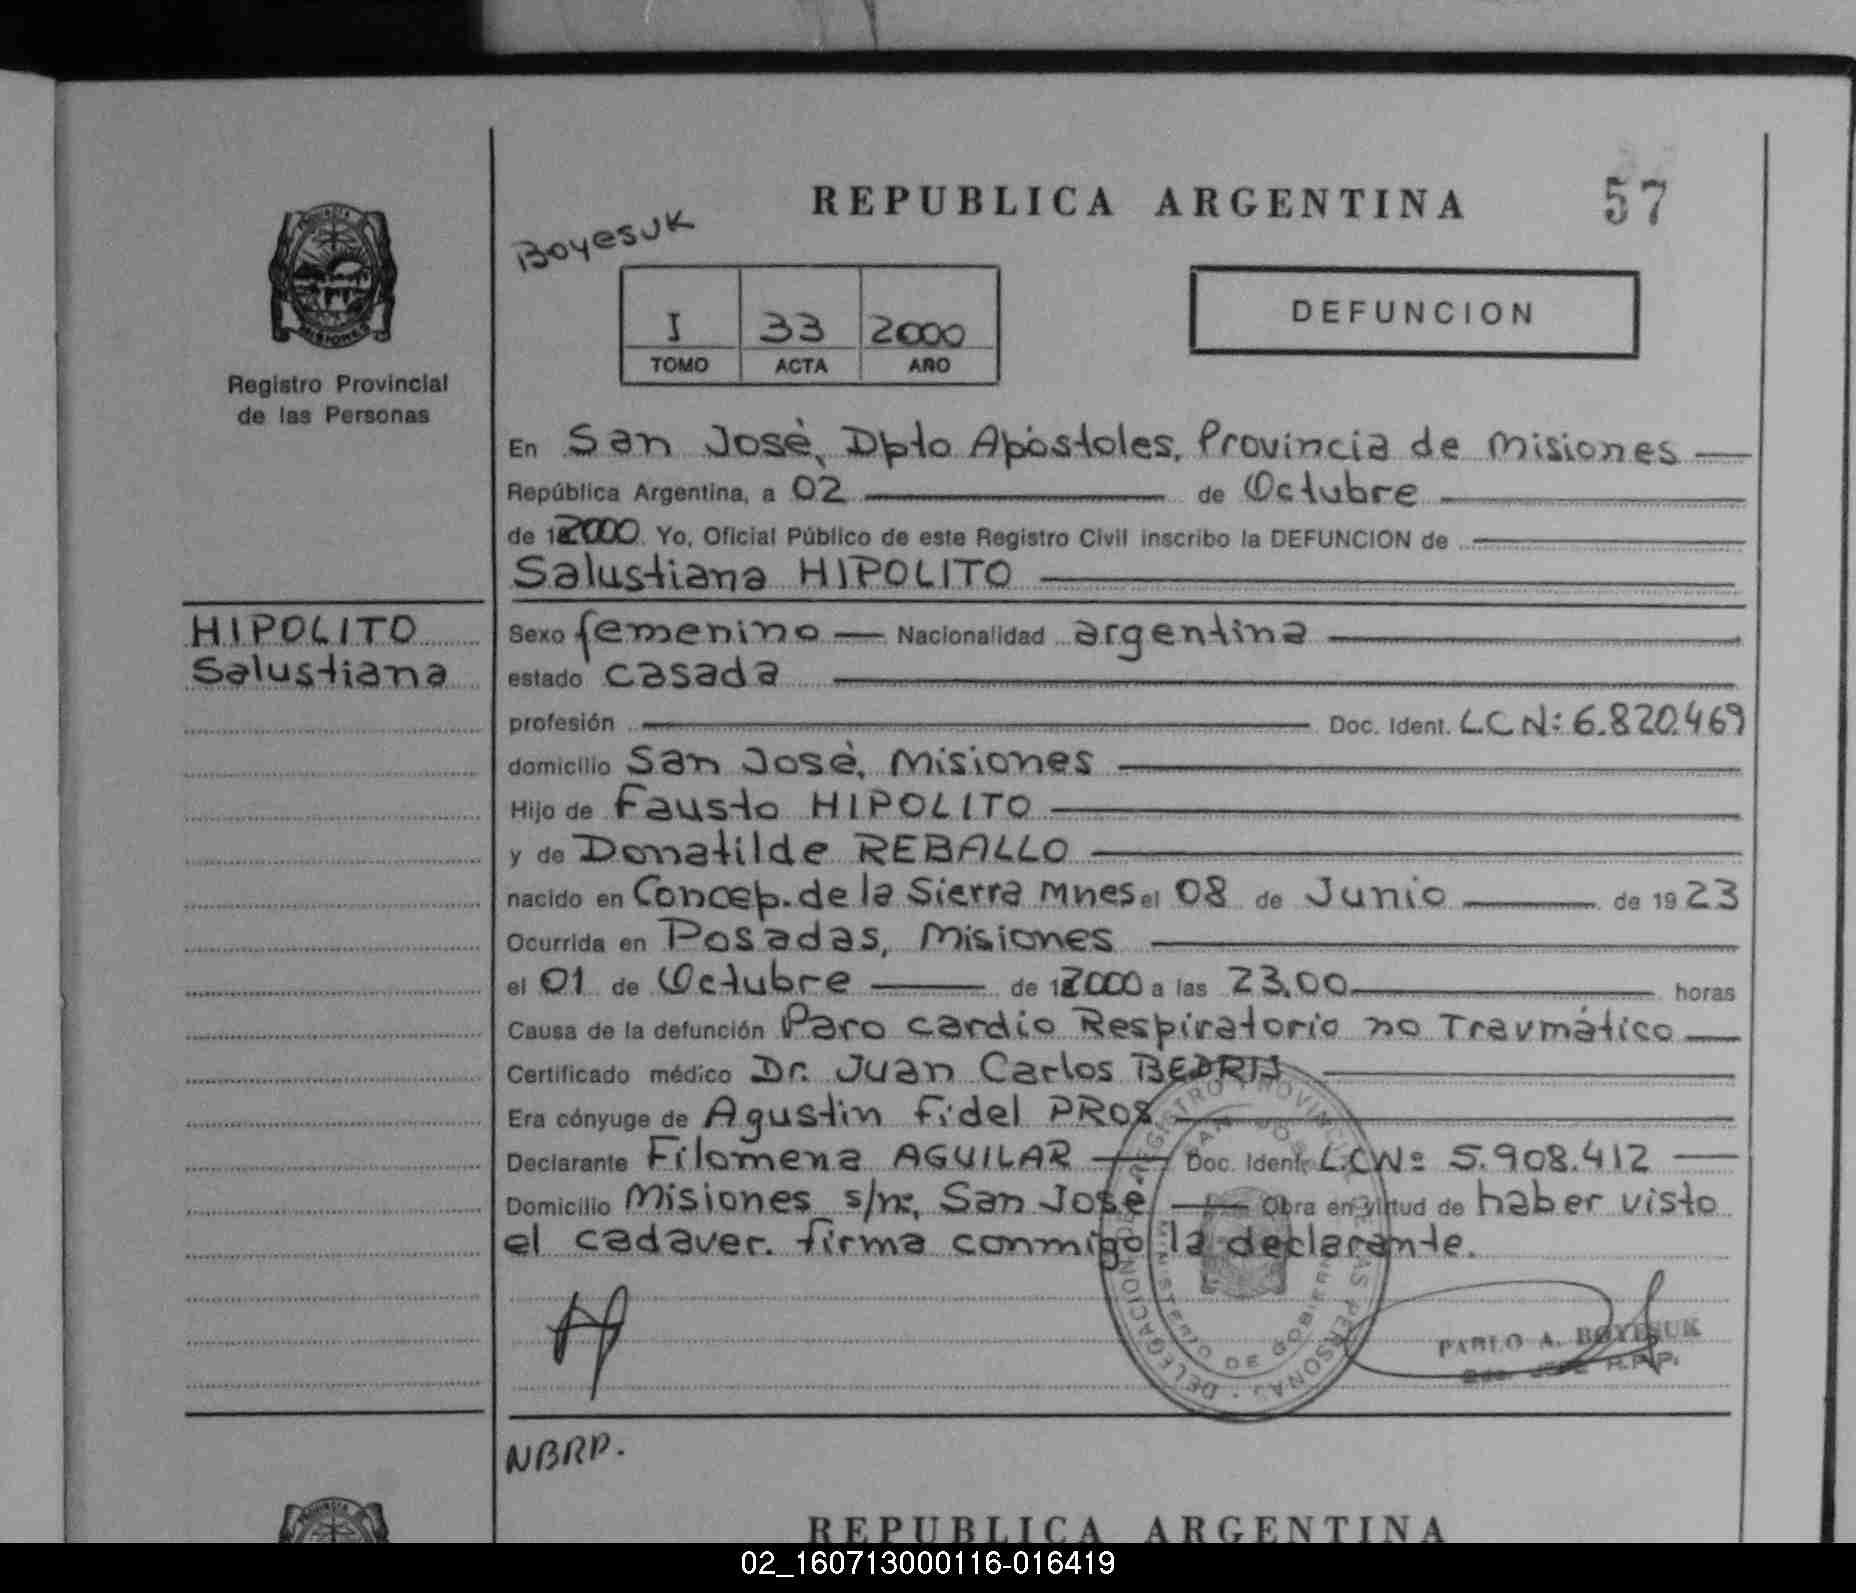 REPUBLICA ARGENTINA
57
Boyesuk
I 33 2000
TOMO ACTA AÑO
DEFUNCION
PROVINCIA
MISIONES
Registro Provincial
de las Personas
En San José, Dpto Apóstoles, Provincia de Misiones
República Argentina, a 02 de Octubre
de 2000. Yo, Oficial Público de este Registro Civil inscribo la DEFUNCION de
Salustiana HIPOLITO
HIPOLITO
Salustiana
Sexo femenino Nacionalidad argentina
estado casada
profesión Doc. Ident. L.C Nº: 6.820.469
domicilio San José, Misiones
Hijo de Fausto HIPOLITO
y de Donatilde REBALLO
nacido en Concep. de la Sierra Mnes el 08 de Junio de 1923
Ocurrida en Posadas, Misiones
el 01 de Octubre de 2000 a las 23,00 horas
Causa de la defunción Paro cardio Respiratorio no Traumático
Certificado médico Dr. Juan Carlos BEDRIJ
Era cónyuge de Agustin Fidel PROS
Declarante Filomena AGUILAR Doc. Ident. L.C Nº 5.908.412
Domicilio Misiones s/nº, San José Obra en virtud de haber visto
el cadaver. firma conmigo la declarante.
DELEGACION DE REGISTRO PROVINCIAL DE LAS PERSONAS
SAN JOSE
MINISTERIO DE GOBIERNO
PABLO A. BOYESUK
JEFE R.P.P.
NBRP.
REPUBLICA ARGENTINA
02_160713000116-016419